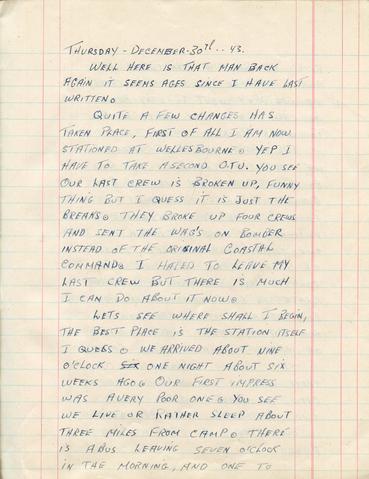 THURSDAY - DECEMBER-30TH .. 43.
WELL HERE IS THAT MAN BACK
AGAIN IT SEEMS AGES SINCE I HAVE LAST
WRITTEN.
QUITE A FEW CHANGES HAS
TAKEN PLACE, FIRST OF ALL I AM NOW
STATIONED AT WELLESBOURNE. YEP I
HAVE TO TAKE A SECOND O.T.U. YOU SEE
OUR LAST CREW IS BROKEN UP, FUNNY
THING BUT I GUESS IT IS JUST THE
BREAKS. THEY BROKE UP FOUR CREWS
AND SENT THE WAG'S ON BOMBER
INSTEAD OF THE ORIGINAL COASTAL
COMMAND. I HATED TO LEAVE MY
LAST CREW BUT THERE IS MUCH
I CAN DO ABOUT IT NOW.
LETS SEE WHERE SHALL I BEGIN,
THE BEST PLACE IS THE STATION ITSELF
I GUESS. WE ARRIVED ABOUT NINE
O'CLOCK ONE NIGHT ABOUT SIX
WEEKS AGO. OUR FIRST IMPRESS
WAS A VERY POOR ONE. YOU SEE
WE LIVE OR RATHER SLEEP ABOUT
THREE MILES FROM CAMP. THERE
IS A BUS LEAVING SEVEN O'CLOCK
IN THE MORNING, AND ONE TO